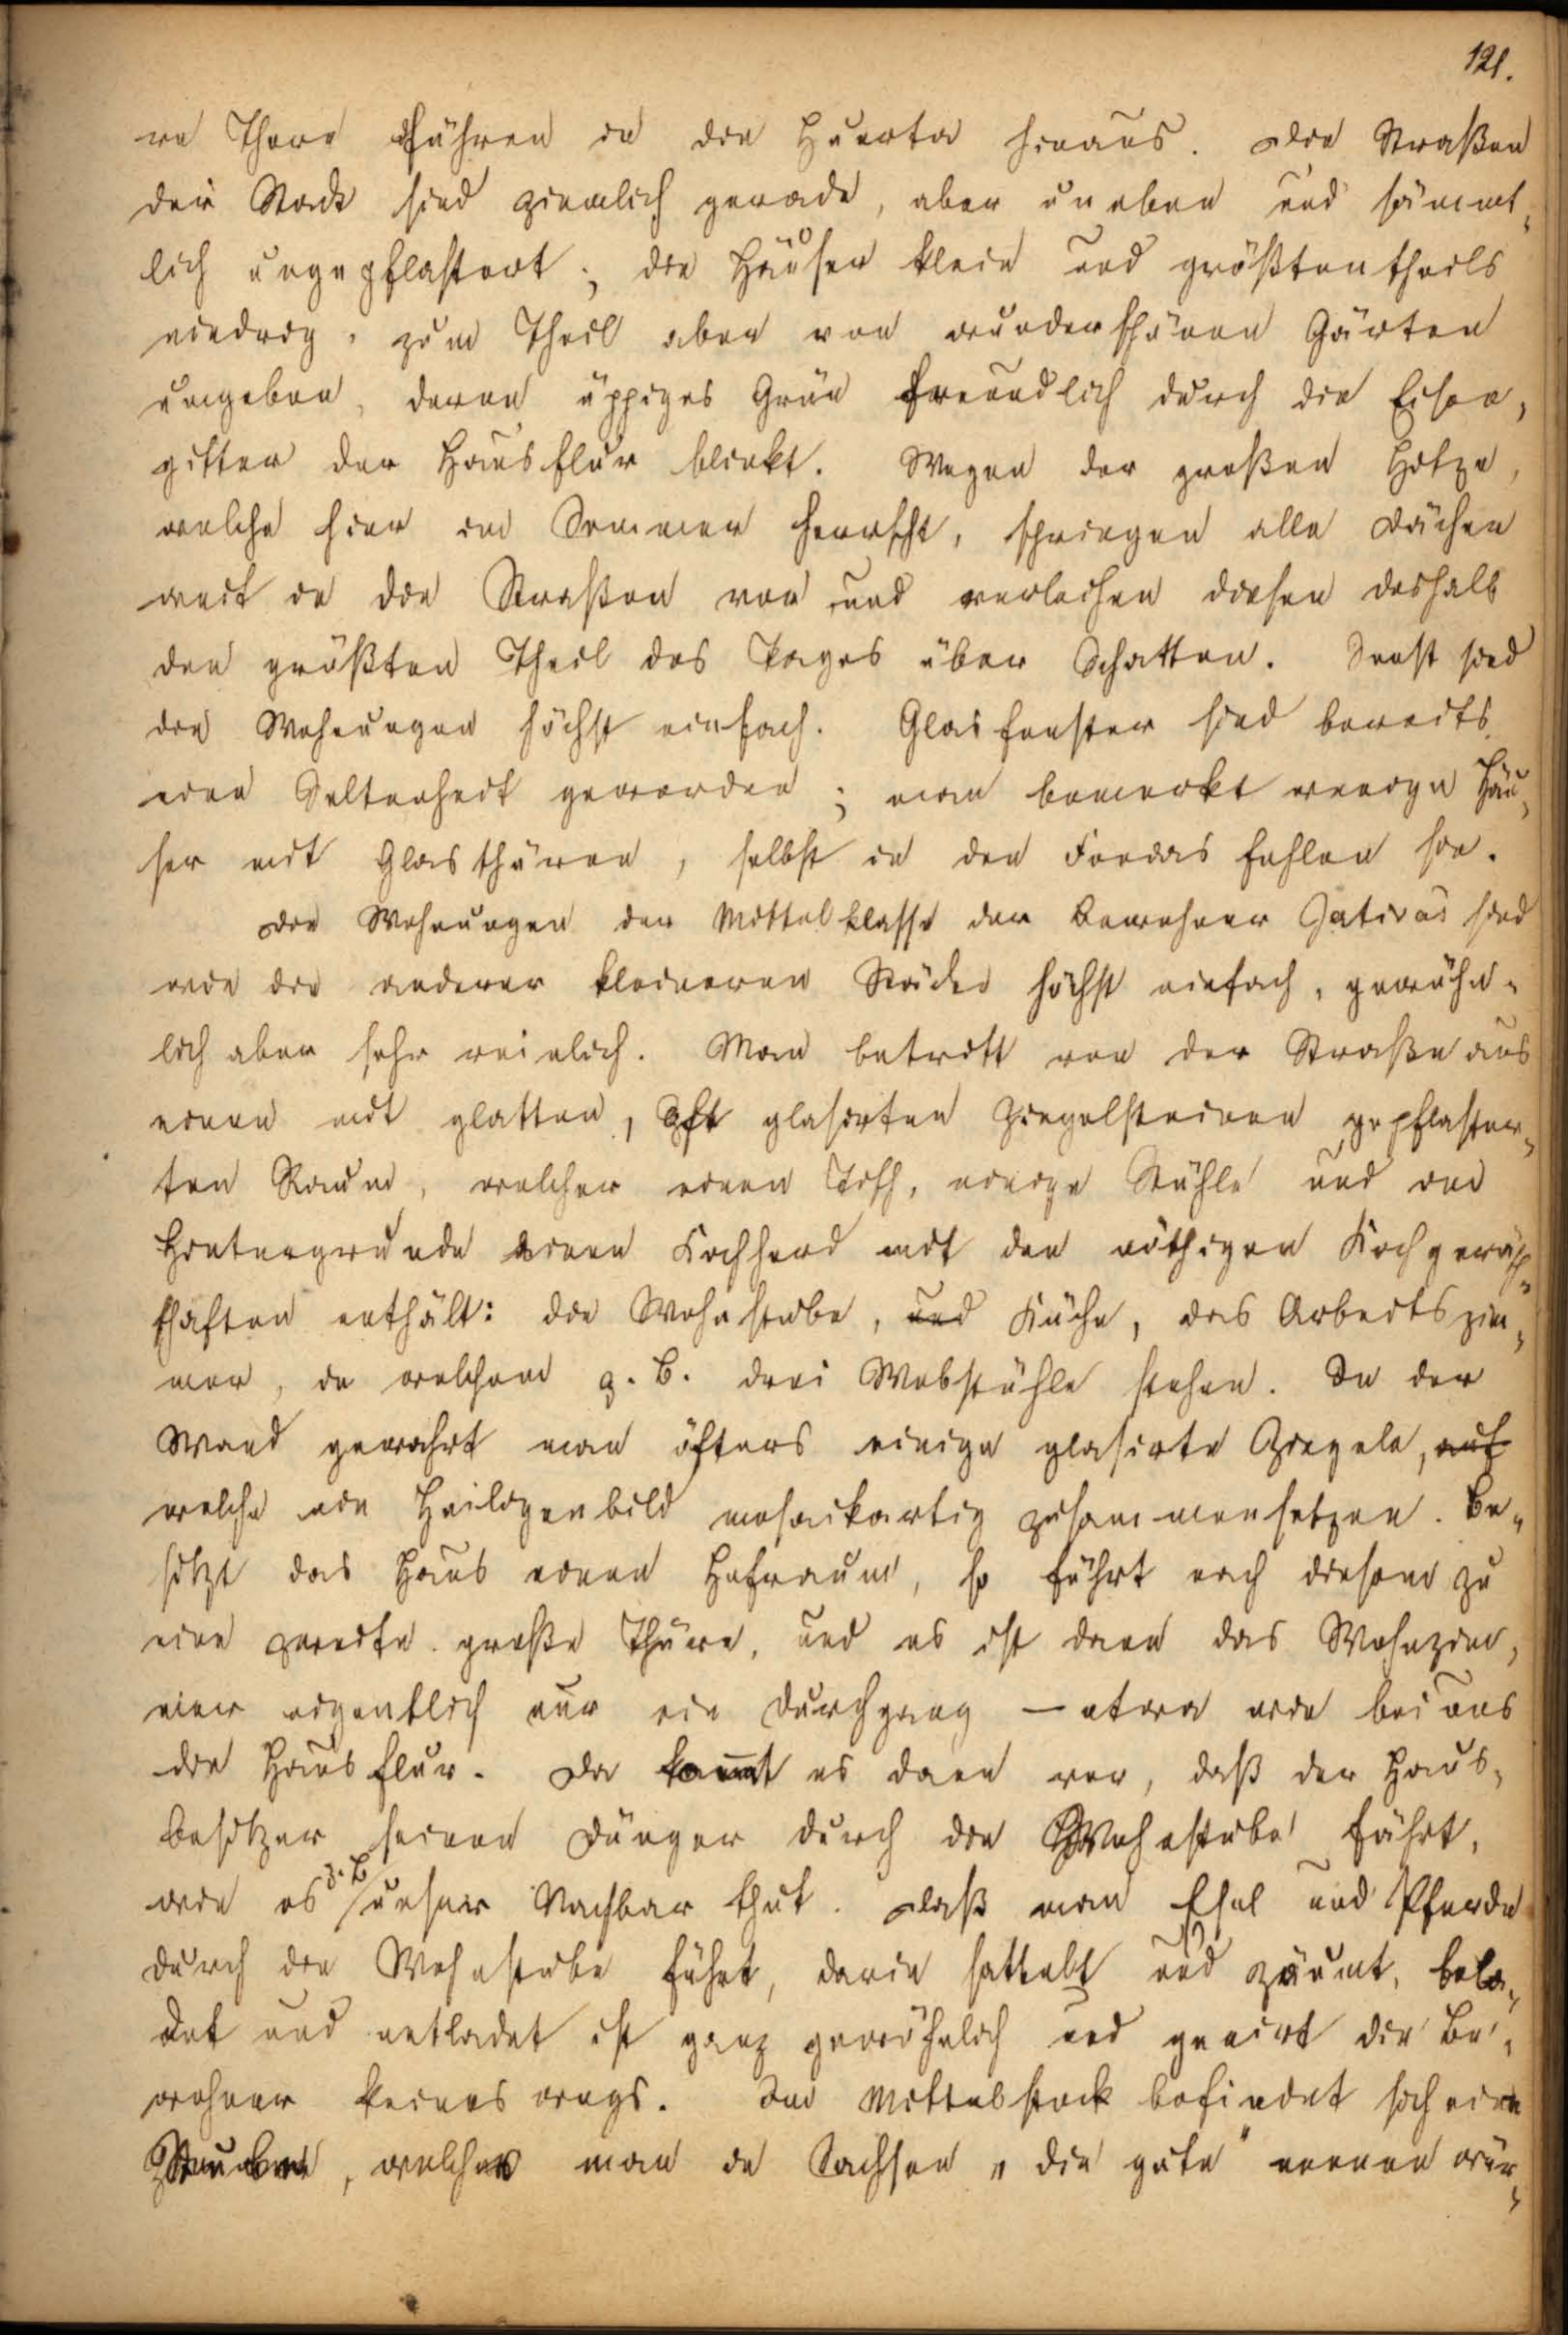 121.
re Thore führen in die Huerta hinaus. Die Straßen
der Stadt sind ziemlich gerade, aber uneben und sämmt-
lich ungepflastert; die Häuser klein und größtentheils
niedrig, zum Theil aber von wunderschönen Gärten
umgeben, deren üppiges Grün freundlich durch die Eisen-
gitter der Hausflur blinkt. Wegen der großen Hitze,
welche hier im Sommer herrscht, springen alle Dächer
weit in die Straßen vor und verleihen diesen deshalb
den größten Theil des Tages über Schatten. Sonst sind
die Wohnungen höchst einfach. Glasfenster sind bereits
eine Seltenheit geworden; man bemerkt wenige Häu-
ser mit Glasthüren, selbst in den Fondas fehlen sie.
Die Wohnungen der Mittelklasse der Bewohner Jativas sind
wie die anderer kleineren Städte höchst einfach, gewöhn-
lich aber sehr reinlich. Man betritt von der Straße aus
einen mit glatten, oft glasirten Ziegelsteinen gepflaster-
ten Raum, welcher einen Tisch, einige Stühle und im
Hintergrunde einen Kochherd mit den nöthigen Kochgeräth-
schaften enthält: die Wohnstube, und Küche, das Arbeitszim-
mer, in welchem z. B. drei Webstühle stehen. In der
Wand gewahrt man öfters einige glasirte Ziegeln, auf
welche ein Heiligenbild mosaikartig zusammensetzen. Be-
sitzt das Haus einen Hofraum, so führt nach diesem zu
eine zweite große Thüre, und es ist dann das Wohnzim-
mer eigentlich nur ein Durchgang – etwa wie bei uns
die Hausflur. Da kommt es denn vor, daß der Haus-
besitzer seinen Dünger durch die Wohnstube fährt,
wie es z. B. unser Nachbar thut. Daß man Esel und Pferde
durch die Wohnstube führt, darin sattelt und zäumt, bela-
det und entladet ist ganz gewöhnlich und genirt die Be-
wohner keineswegs. Im Mittelstock befindet sich eine
, welche man in Sachsen „die gute" nennen wür-